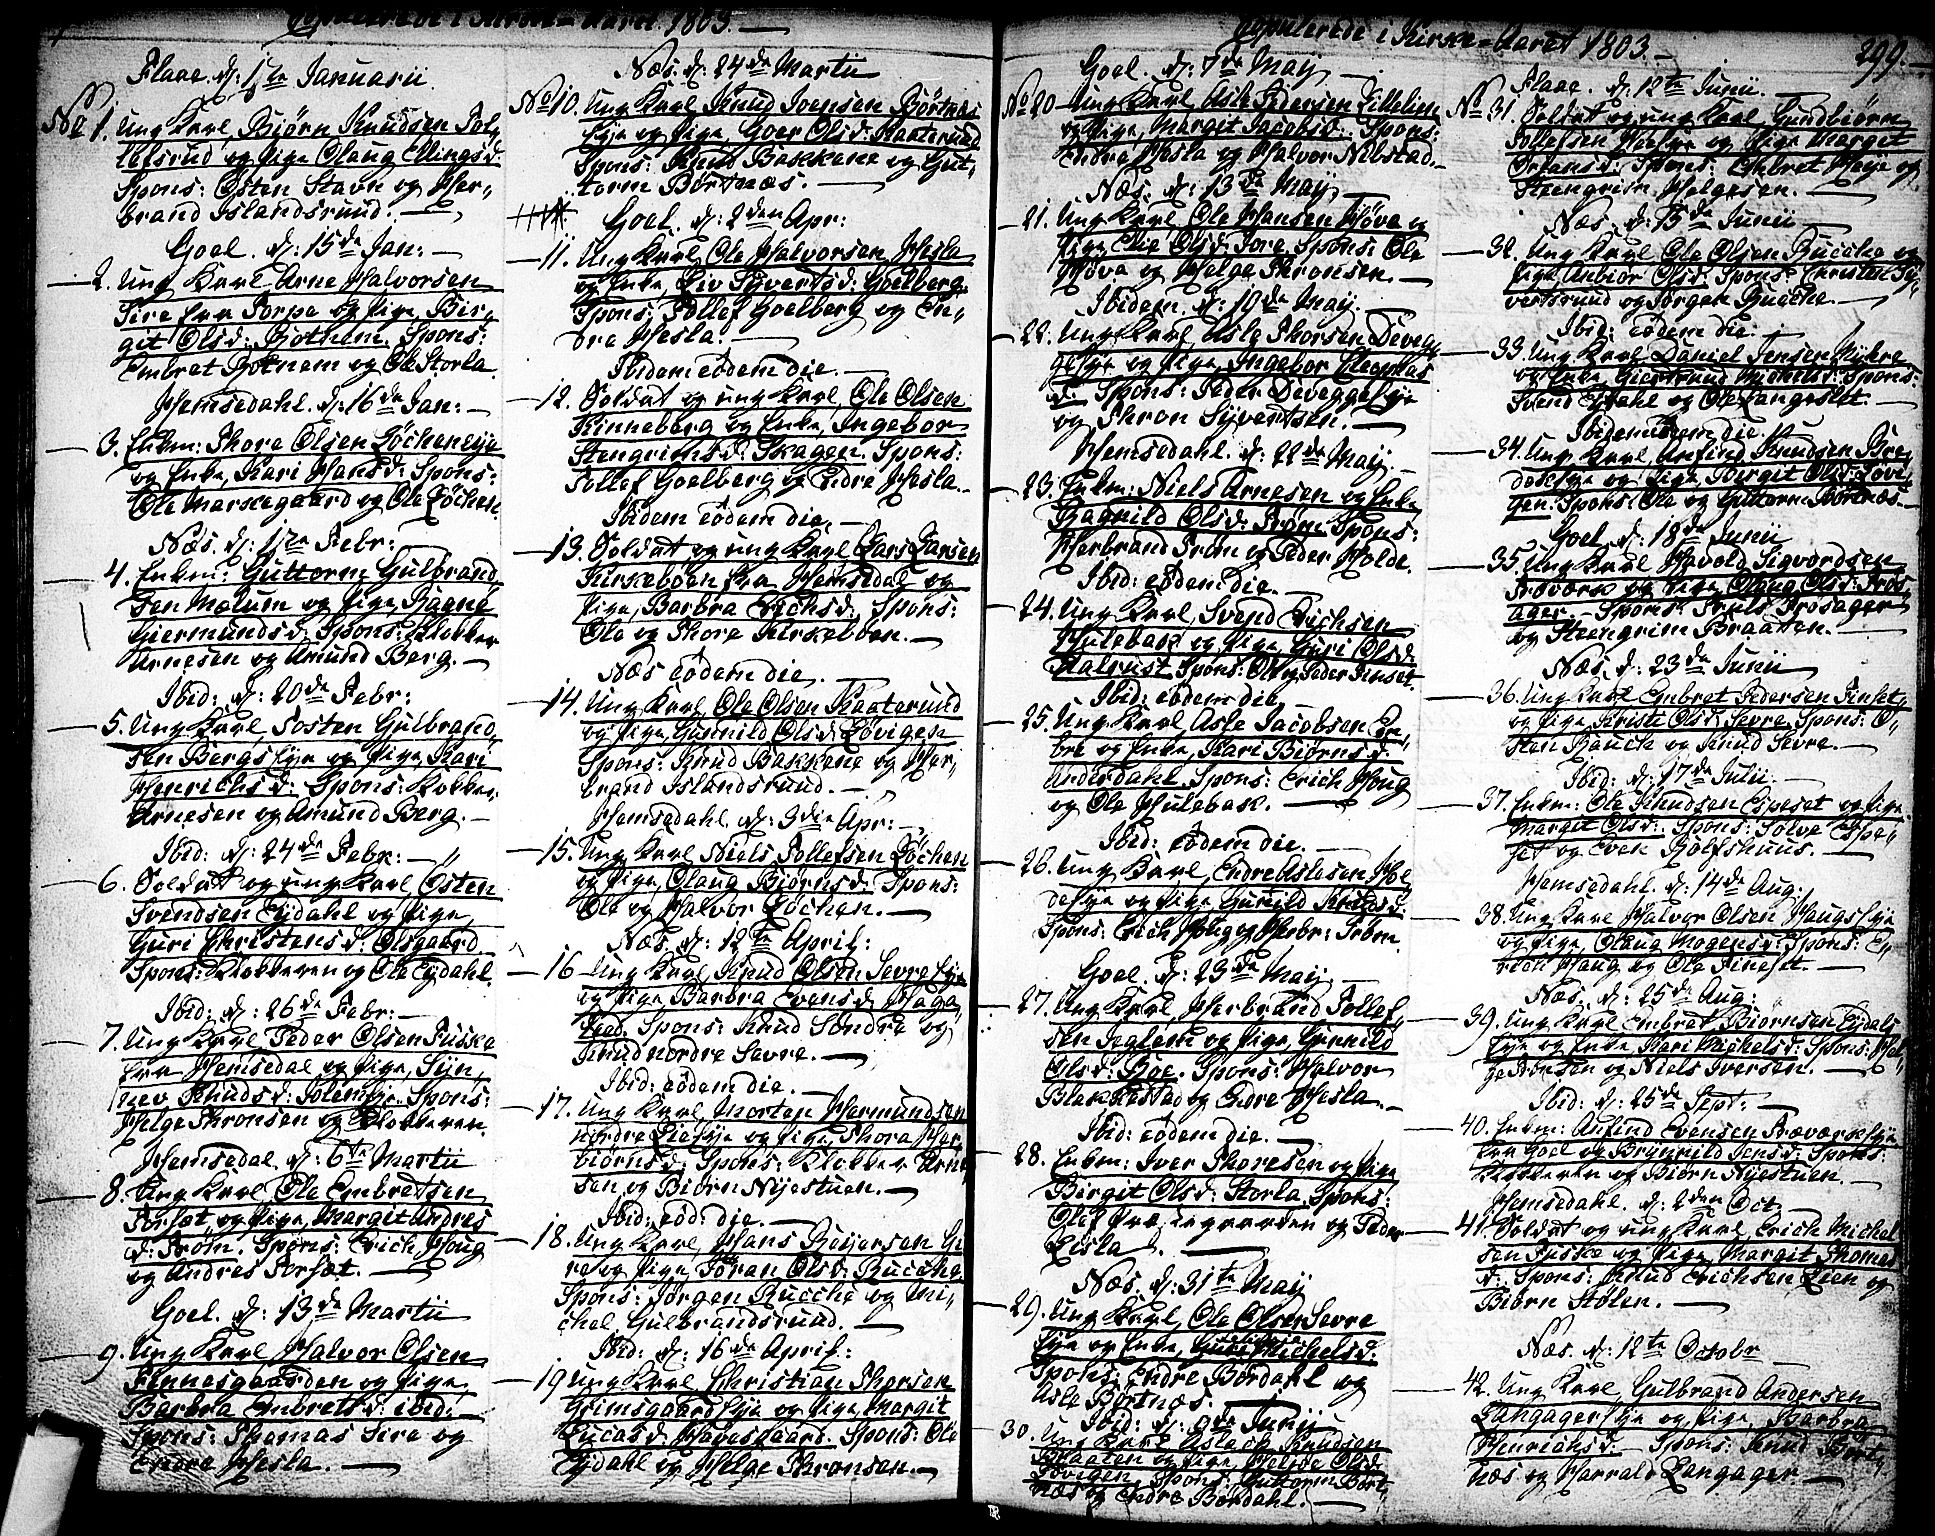 Copulerede i Kirke-Aaret 1803.
Flaae. d: 1te Januarii
No 1. Ung Karl, Biørn Knudsen Tol-
lefsrud og Pige Olaug Ellingsd:
Spons: Østen Stavn og Her-
brand Islandsrud.
Goel. d: 15de Jan:
2. Ung Karl Arne Halvorsen
Sire fra Torpe og Pige, Bir-
git Olsd: Bothem. Spons:
Embret Botnem og Ole Storla.
Hemsedahl. d: 16de Jan:
3. Enkm: Thore Olsen Løcheneje
og Enke, Kari Hansd: Spons:
Ole Markegaard og Ole Løchen.
Næs. d: 17de Febr:
4. Enkm: Guttorm Gulbrand-
sen Mælum og Pige, Ragne
Giermundsd: Spons: Klokker
Arnesen og Amund Berg.
Ibid: d: 20de Febr:
5. Ung Karl, Tosten Gulbrand-
sen Bergs Eje og Pige, Kari
Henrichsd: Spons: Klokker
Arnesen og Amund Berg.
Ibid: d: 24de Febr:
6. Soldat og ung Karl Østen
Svendsen Eydahl og Pige,
Guri Christensd: Olsgaard.
Spons: Klokkeren og Ole Eydahl.
Ibid: d: 26de Febr:
7. Ung Karl, Peder Olsen Fuske
fra Hemsedal og Pige, Syn-
nev Knudsd: Spons:
Helge Thronsen og Klokkeren.
Hemsedal. d: 6te Martii
8. Ung Karl, Ole Embretsen
Torset og Pige, Margit Andres
d: Trøm. Spons: Erich Houg
og Andres Torset.
Goel. d: 13de Martii
9. Ung Karl, Halvor Olsen
Finnesgaarden og Pige,
Barbra Embretsd: ibid:
Spons: Thomas Sire og
Endre Hesla.
Næs. d: 24de Martii
No 10. Ung Karl, Knud Ivensen Børtnes
Eje og Pige, Goer Olsd: Kaaterud
Spons: Knud Bakkene og Gut-
torm Børtnæs.
Goel. d: 2den Apr:
11. Ung Karl, Ole Halvorsen Hesla
og Enke, Liv Syvertsd: Goelberg.
Spons: Tollef Goelberg og En-
dre Hesla.
Ibidem eodem die.
12. Soldat og ung Karl, Ole Olsen
Kinneberg og Enke, Ingebor
Stengrimsd: Skagen. Spons:
Tollef Goelberg og Endre Hesla.
Ibidem eodem die.
13. Soldat og ung Karl Lars Larsen
Kirkebøen fra Hemsedal og
Pige, Barbra Erichsd: Spons:
Ole og Thore Kirkebøen.
Næs eodem die.
14. Ung Karl, Ole Olsen Kaaterud
og Pige, Gunild Olsd: Løvigen
Spons: Knud Bakkene og Her-
brand Islandsrud.
Hemsedahl. d: 3die Apr:
15. Ung Karl Niels Tollefsen Løchen
og Pige, Olaug Biørnsd: Spons:
Ole og Halvor Løchen.
Næs. d: 12te April:
16 Ung Karl, Knud Olsen Sevre Eje
og Pige Barbra Evensd: Haga-
Spons: Knud Søndre og
Knud nordre Sevre.
Ibid: eodem die.
17. Ung Karl, Morten Hermundsen
nordre Lie Eje og Pige, Thora Her-
biørnsd: Spons: Klokker Arne-
sen og Biørn Nyestuen.
Ibid: eod: die.
18. Ung Karl, Hans Reijersen Gi-
re og Pige, Jøran Olsd: Rucche.
Spons: Jørgen Rucche og Mi-
chel Gulbrandsrud.
Ibid: d: 16de April:
19 Ung Karl Christian Thorsen
Grimsgaard Eje og Pige, Margit
Lucasd: Havesgaard. Spons: Ole
Eydahl og Helge Thronsen.
Copulerede i Kirke-Aaret 1803.
299.
Goel. d: 7de Maij
No 20 Ung Karl, Asle Pedersen Lillelien
og Pige, Margit Jacobsd: Spons:
Endre Hesla og Halvor Nibstad.
Næs. d: 13de Maij
21. Ung Karl, Ole Hansen Høva og
Pige, Olie Olsd: Jore. Spons: Ole
Høva og Helge Thronsen.
Ibidem. d: 19de Maij.
22. Ung Karl, Asle Thorsen Deveg-
ge Eje og Pige, Ingebor Cleophas
d: Spons: Peder Devegge Eje
og Thron Syvertsen.
Hemsedahl. d: 22de Maij.
23. Enkm: Niels Arnesen og Enke
Ragnild Olsd: Trøm. Spons:
Herbrand Trøm og Peder Holde.
Ibid: eodem die.
24. Ung Karl, Svend Erichsen
Hulebak og Pige, Guri Olsd:
Spons: Ole og Peder Finset.
Ibid: eodem die
25. Ung Karl, Asle Jacobsen Em-
bre og Enke, Kari Biørnsd:
Anderdahl. Spons: Erich Houg
og Ole Hulebak.
Ibid: eodem die.
26. Ung Karl, Endre Aslesen He-
de Eje og Pige, Gunild Knudsd:
Spons: Erich Houg og Herbr: Trøm.
Goel. d: 23de Maij
27. Ung Karl, Herbrand Tollef-
sen Jeglem og Pige, Gunild
Olsd: Roe. Spons: Halvor
Blakkestad og Endre Hesla.
Ibid: eodem die.
28. Enkm: Iver Thoresen og Pige
Birgit Olsd: Storla. Spons:
Olef Præstegaarden og Peder
Lisla.
Næs. d: 31te Maij
29. Ung Karl, Ole Olsen Sevre
Eje og Enke, Guri Michelsd:
Spons: Endre Børdahl og
Asle Børtnæs.
Ibid: d: 9de Junij
30. Ung Karl Aslach Knudsen
Braaten og Pige, Helge Olsd:
Løvigen. Spons: Guttorm Børt-
næs og Endre Børdahl.
Flaae. d: 12te Junii
No 31. Soldat og ung Karl, Gundbiørn
Tollefsen Høye Eje og Pige Margit
Spons: Embret Høye og
Steengrim Helgesen.
Næs. d: 15de Junii
32. Ung Karl Ole Olsen Rucche og
Pige, Anbiør Olsd: Spons: Christen Sy-
vertsrud og Jørgen Rucche.
Ibid: eodem die:
33. Ung Karl Daniel Jensen Myhre
og Enke, Giertrud Michelsd: Spons:
Svend Eydahl og Ole Langeslet.
Ibidem eodem die.
34. Ung Karl, Anfind Knudsen Bre-
Eje og Pige, Birgit Olsd: Løvi-
gen. Spons: Ole og Guttorm Børtnæs.
Goel. d: 18de Junii
35. Ung Karl Havold Sigvordsen
Prøvork og Pige, Olaug Olsd: Tros-
ager. Spons: Truls Trosager
og Steengrim Braaten.
Næs. d: 23de Junii
36. Ung Karl Embret Pedersen Finset
og Pige, Kristi Olsd: Sevre. Spons: Ø-
sten Rauck og Knud Sevre.
Ibid: d: 17de Julii
37. Enkm: Ole Knudsen Espeset og Pige
Margit Olsd: Spons: Solve Espe-
set og Even Rolfshuus.
Hemsedahl. d: 14de Aug:
38. Ung Karl, Halvor Olsen Haugs Eje
og Pige, Olaug Mogensd: Spons: E-
rich Haug og Ole Finset.
Næs. d: 25de Aug:
39. Ung Karl Embret Biørnsen Eydals
Eje og Enke, Kari Michelsd: Spons: Hel-
ge Thorsen og Niels Iversen.
Ibid: d: 25de Sept:
40. Enkm: Anfind Evensen Præværk Eje
fra Goel og Brynnild Jensd: Spons:
Klokkeren og Biørn Nyestuen.
Hemsedahl. d: 2den Oct.
41. Soldat og ung Karl, Erich Michel-
sen Fuske og Pige, Margit Thomas
d: Spons: Knud Erichsen Lien og
Biørn Stølen.
Næs. d: 12te Octobr
42. Ung Karl, Gulbrand Andersen
Langager Eje og Pige, Barbra
Henrichsd. Spons: Knud Bort-
næs og Harrald Langager.